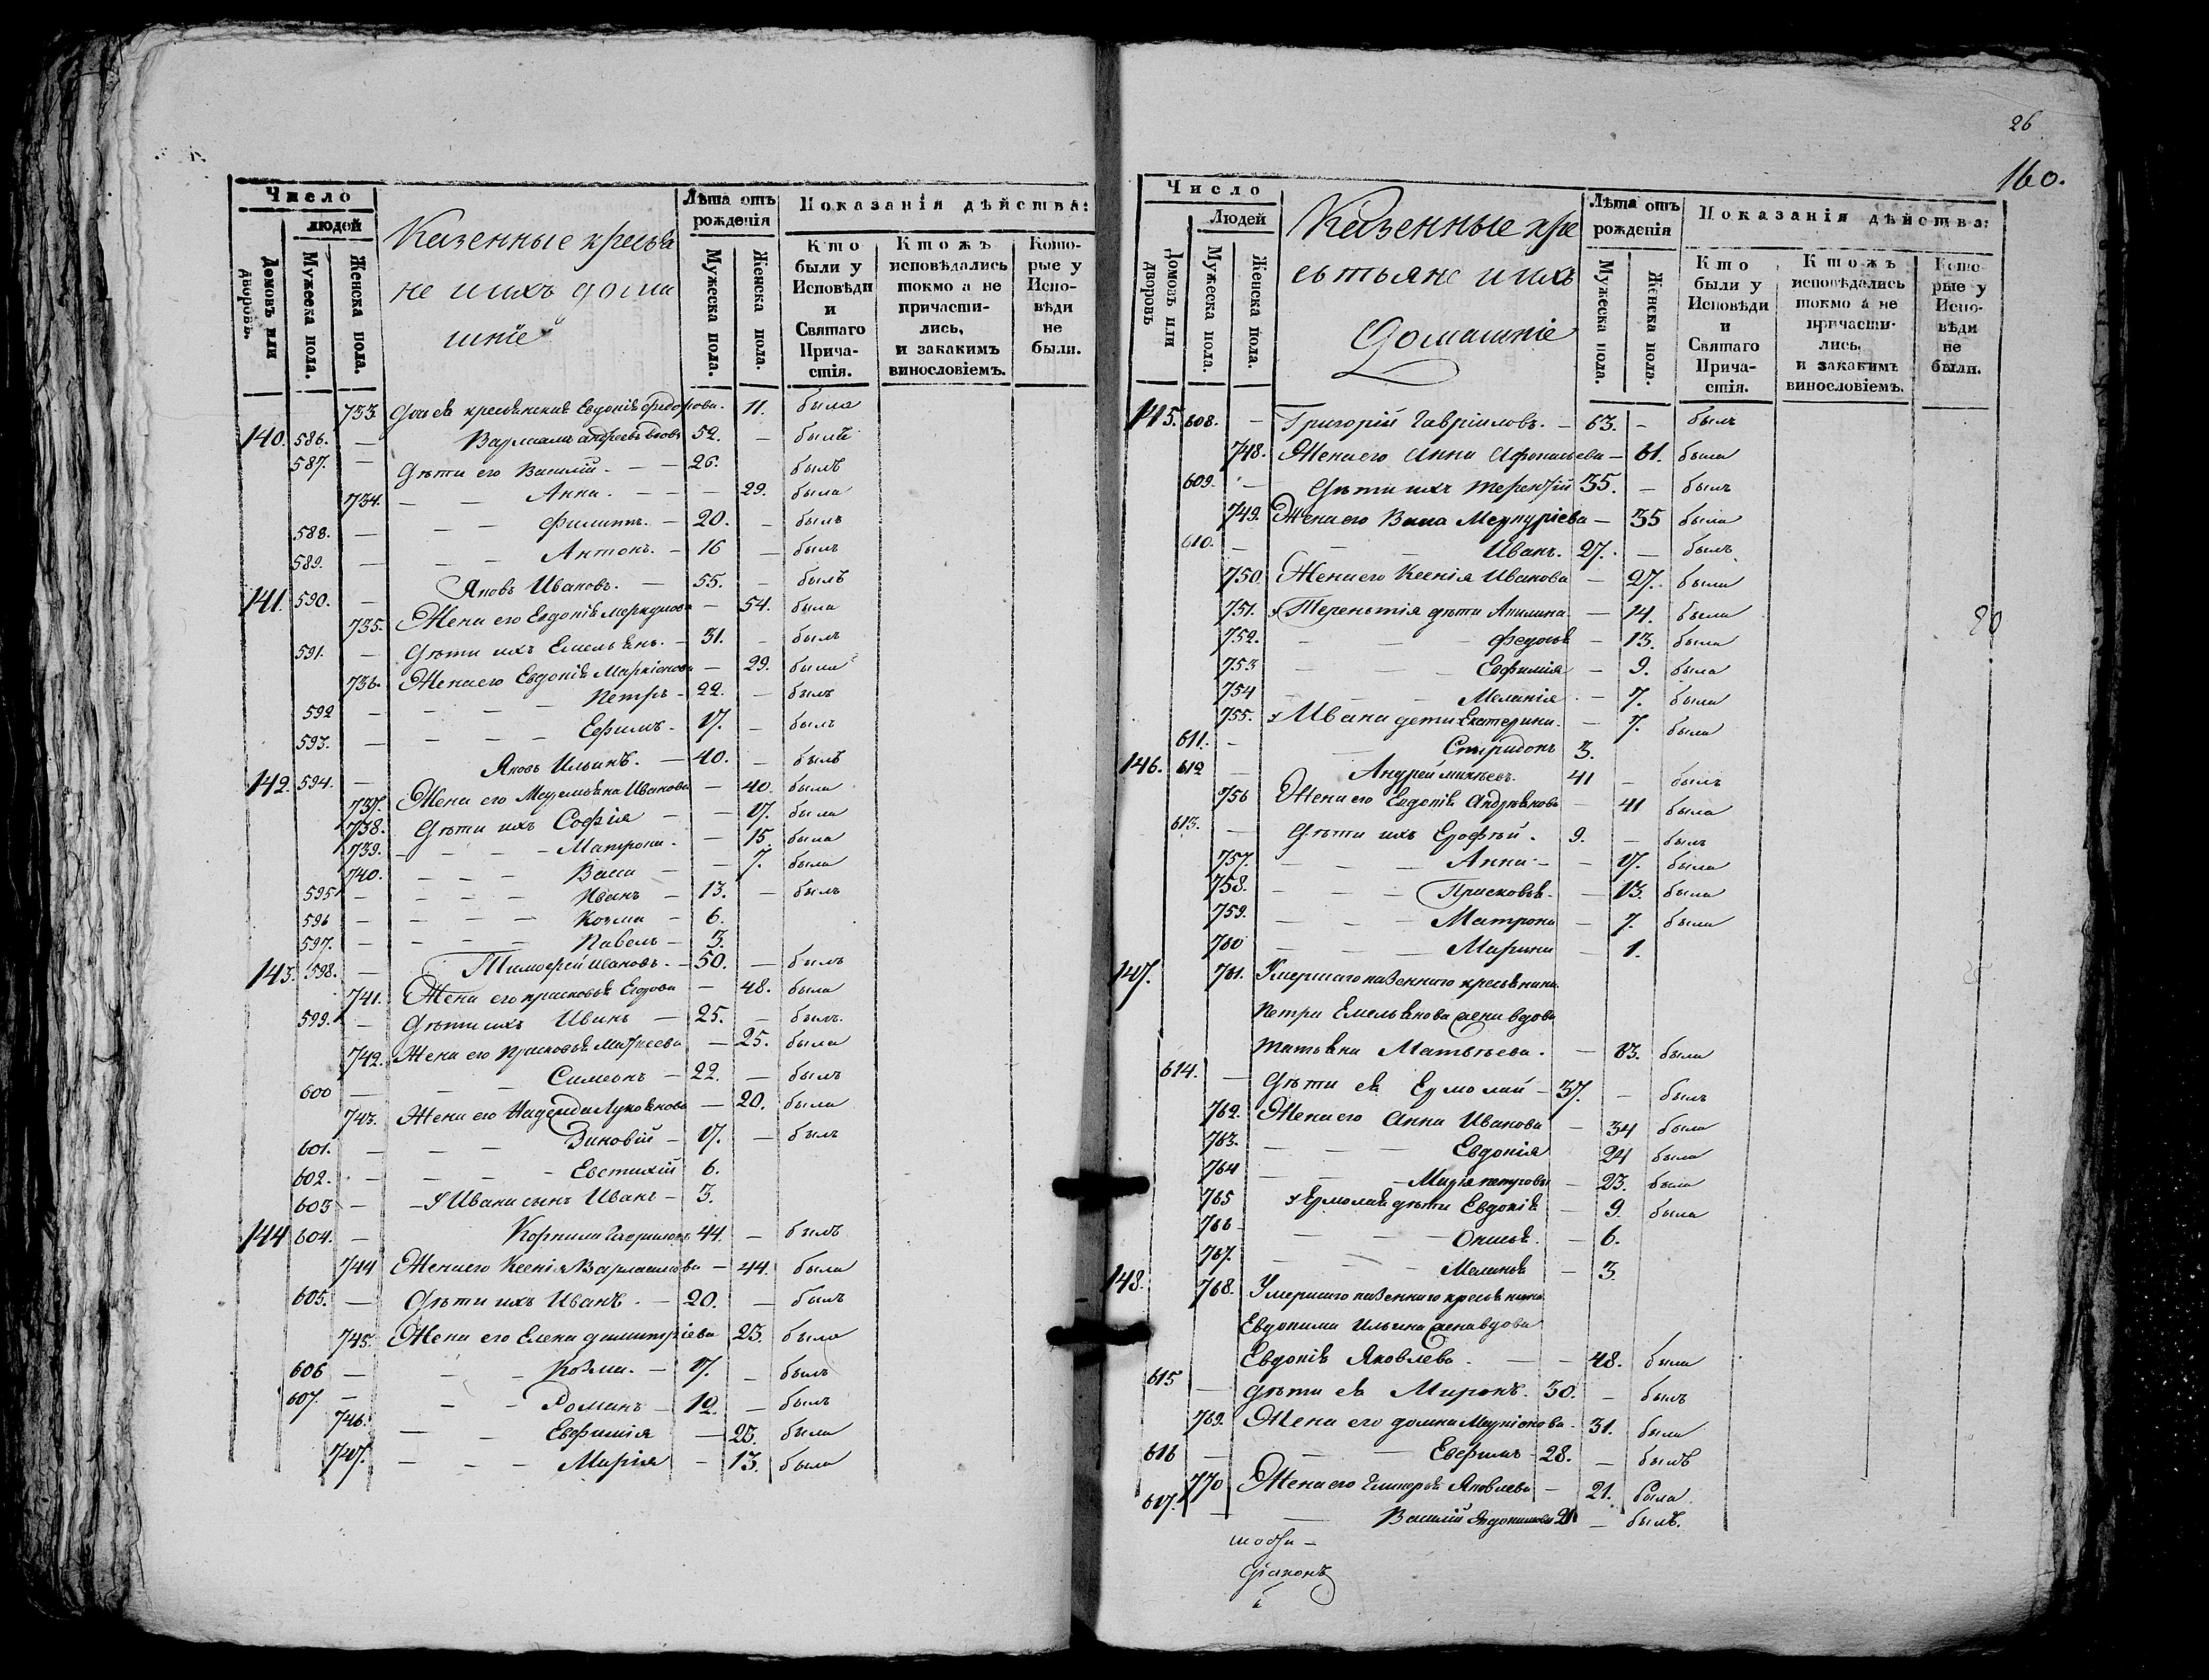 Число
людей
Домовъ или дворовъ.
Мужеска пола.
Женска пола.
Казенные кресья
не и ихъ дома
шніе
Лѣта отъ рожденія
Мужеска пола.
Женска пола.
Показанія дѣйства:
Кто были у Исповѣди и Святаго Прича-стія.
Ктожъ исповѣдались токмо а не причасти-лись, и закакимъ винословіемъ.
Кото-рые у Испо-вѣди не были.
733. кресьянскія Евдокія Федорова. 11. была
140. 586. — Варлаамъ Андреевъ вдовъ 52. — былъ
587. — Дѣти его Василій. — — 26. былъ
734. — — Анна. — — — 29. была
588. — — — Филиппъ. — 20. — былъ
589. — — — Антонъ. — 16 — былъ
141. 590. — Яковъ Ивановъ. — 55. — былъ
735. Жена его Евдокія Меркулова — 54. была
591. — Дѣти ихъ Емельянъ. — 31. — былъ
736. Жена его Евдокія Маркіонова — 29. была
592 — — — — Петръ — 22. — былъ
593. — — — — Ефимъ. — 17. — былъ
142. 594. — Яковъ Ильинъ. — 40. — былъ
737. Жена его Иванова — 40. была
738. Дѣти ихъ Софія — — 17. была
739. — — — Матрона. — 15. была
740. — — — Васса — — 7. была
595 — — — — Иванъ — 13. — былъ
596 — — — — Козма — 6.
597. — — — — Павелъ — 3.
143. 598. — Тимофей Ивановъ. — 50. — былъ
741. Жена его Прасковья Егорова — 48. была
599. — Дѣти ихъ Иванъ — 25. — былъ.
742. Жена его Прасковья Матѳеева — 25. была
600 — — — Симеонъ — 22. — былъ
743. Жена его Надежда Лукьянова — 20. была
601. — — — Зиновій — 17. — былъ
602. — — — Евстихій 6.
603 — — У Ивана сынъ Иванъ — 3.
144 604. — Корнила Гавриловъ 44. — былъ
744 Жена его Ксенія Варлаамова — 44. была
605. — Дѣти ихъ Иванъ. — 20. — былъ
745. Жена его Елена Димитріева 23. была
606 — — — Козма. — 17. — былъ
607. — — — Романъ — 12. — былъ
746. — — Евфимія — 25. была
747. — — — Марія — 13. была
26
160.
Число
Людей
Домовъ или дворовъ
Мужеска пола.
Женска пола.
Казенные кре
стьяне и ихъ
Домашніе
Лѣта отъ рожденія
Мужеска пола.
Женска пола.
Показанія дѣйства:
Кто были у Исповѣди и Святаго Прича-стія.
Ктожъ исповѣдались токмо а не причасти-лись, и закакимъ винословіемъ.
Кото-рые у Испо-вѣди не были.
145. 608. — Григорій Гавріиловъ. — 63. — былъ
748. Жена его Анна Афонасьева — 61. была
609. — Дѣти ихъ Терентій 35. — былъ
749. Жена его Васса Меркуріева — 35 была
610. — — Иванъ. 27. — былъ
750. Жена его Ксенія Иванова — 27. была
751. у Терентія дѣти Акилина — 14. была
752. — — Федосья — 13. была
753 — — Евфимія — 9. была
754 — — Меланія — 7. была
755. у Ивана дети Екатерина. — 7. была
611. — — Спиридонъ 3.
146. 612 — Андрей Михѣевъ. 41 — былъ
756 Жена его Евдокія Андріянова — 41 была
613. — Дѣти ихъ Ерофѣй. 9. — былъ
757. — — — Анна — — 17. была
758. — — — Прасковья — 13. была
759. — — Матрона — 7. была
760 — — Марина — 1.
147. 761. Умершаго казеннаго кресьянина
Петра Емельянова жена вдова
Татьяна Матвѣева. — 63. была
614. — Дѣти ея Ермолай — 37. — былъ
762. Жена его Анна Иванова — 34 была
763. — — — Евдокія 24 была
764 — — — Марія Петровы — 23. была
765 у Ермолая дѣти Евдокія — 9. была
766 — — — Анисья. — 6.
767. — — — Меланья — 3.
148. 768. Умершаго казеннаго кресьянина
Евдокима Ильина жена вдова
Евдокія Яковлева. — — 48. была
615 — дѣти ея Миронъ. 30. — былъ
769. Жена его Домна Маркіонова. 31. была
616 — — — Евфимъ — 28. — былъ
770 Жена его Гликерія Яковлева — 21. была
617. — — Василій Евдокимовы 21 — былъ.
Діаконъ